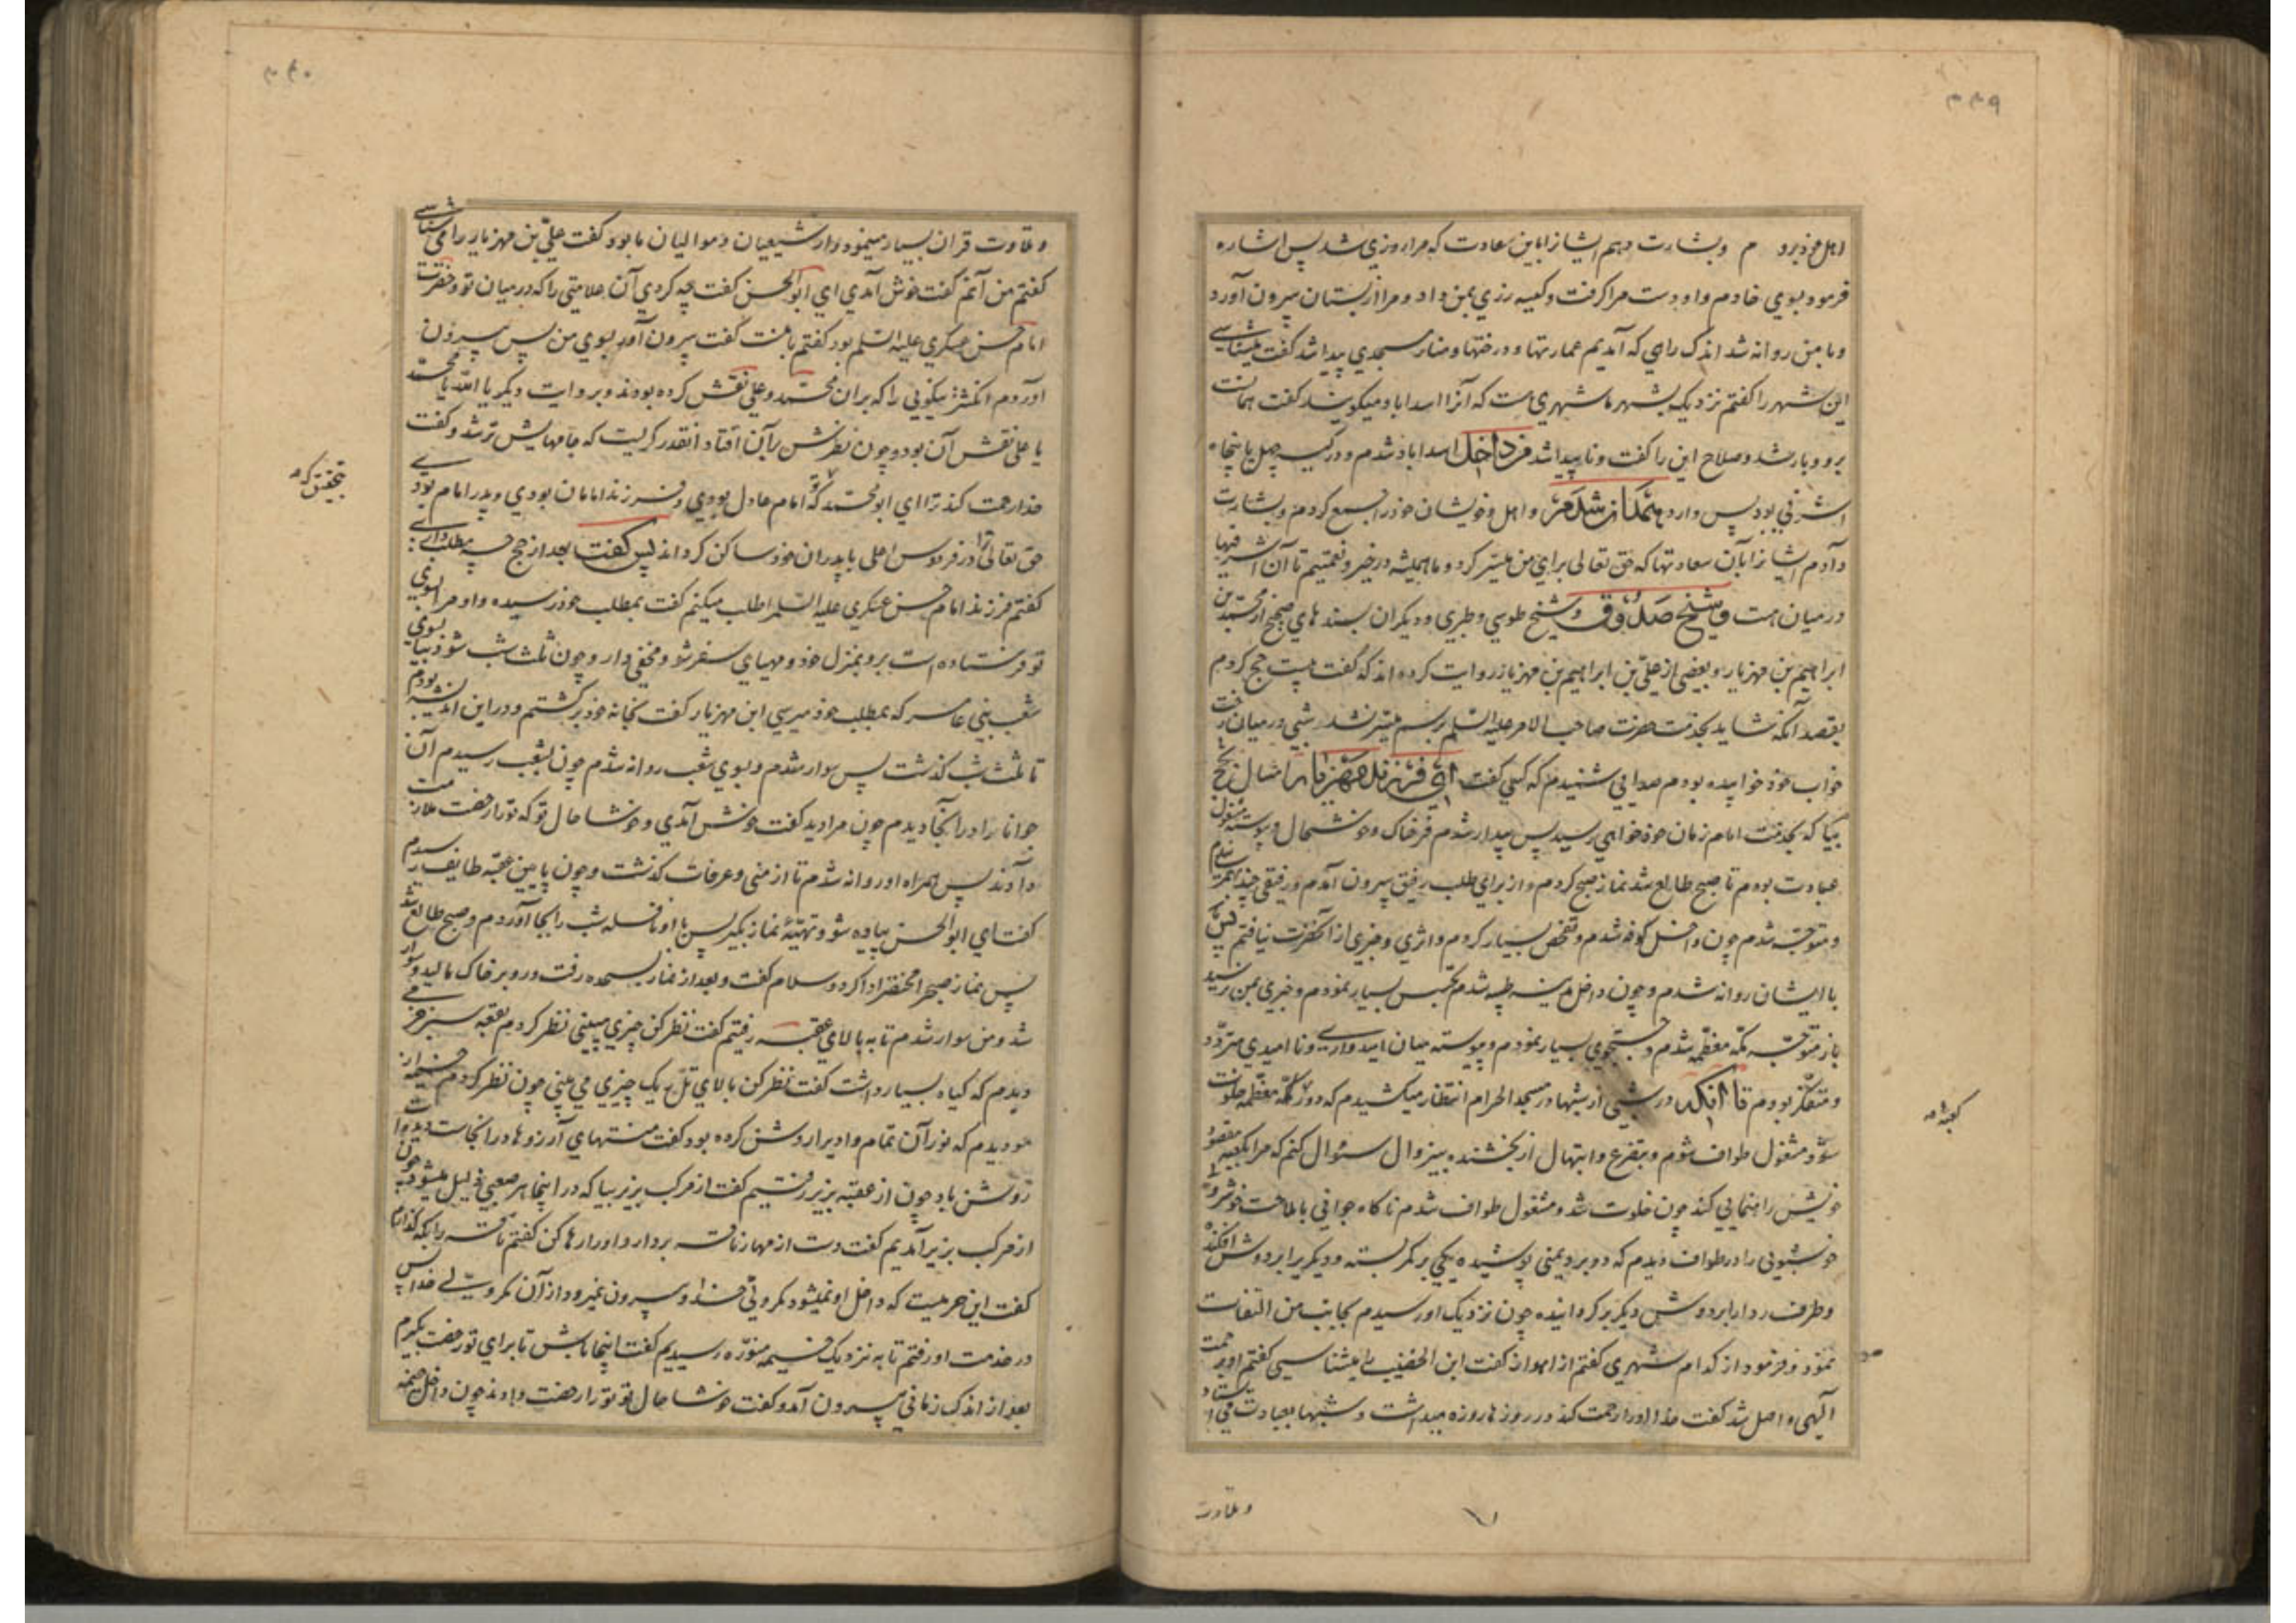 ۳۳۹
اهل خود برو م و بشارت دهم ایشانرا باین سعادت که مرا روزی شد پس اشاره
فرمود بسوی خادم و او دست مرا کرفت و کیسه زری بمن داد و مرا از بستان بیرون آورد
و با من روانه شد اندک راهی که آمدیم عمارتها و درختها و منار مسجدی پیدا شد کفت میشناسی
این شهر را کفتم نزدیک بشهر ما شهری هست که آنرا اسداباد میکویند کفت همانست
برو با رشد و صلاح این را کفت و ناپیدا شد فرد داخل اسداباد شدم و در کیسه چهل یا پنجاه
اشرفی بود پس وارد همدان شدم و اهل و خویشان خود را جمع کردم و بشارت
دادم ایشانرا بان سعادتها که حق تعالی برای من میسر کرد و ما همیشه در خیر و نعمتیم تا آن اشرفیها
در میان هست و شیخ صدوق و شیخ طوسی و طبری و دیکران بسندهای صحیح از محمد بن
ابراهیم بن مهزیار و بعضی از علی بن ابراهیم بن مهزیار روایت کرده اند که کفت بیست حج کردم
بقصد آنکه شاید بخدمت حضرت صاحب الامر علیه السلم برسم میسر نشد شبی در میان رخت
خواب خود خوابیده بودم صدایی شنیدم که کسی کفت ای فرزند مهزیار امسال بحج
بیا که بخدمت امام زمان خود خواهی رسید پس بیدار شدم فرحناک و خوشحال و پیوسته مشغول
عبادت بودم تا صبح طالع شد نماز صبح کردم و از برای طلب رفیق بیرون آمدم و رفیقی چند بهمرسانیدم
و متوجه شدم چون داخل کوفه شدم و تفحص بسیار کردم و اثری و خبری از آنحضرت نیافتم پس
با ایشان روانه شدم و چون داخل مدینه طیبه شدم تجسس بسیار نمودم و خبری بمن نرسید
باز متوجه مکه معظمه شدم و جستجوی بسیار نمودم و پیوسته میان امیدواری و نا امیدی متردد
و متفکر بودم تا آنکه در شبی از شبها در مسجد الحرام انتظار میکشیدم که دور مکه معظمه خلوت
شود مشغول طواف شوم و بتضرع و ابتهال از بخشنده بیزوال سئوال کنم که مرا بکعبه مقصود
خویش راهنمایی کند چون خلوت شد و مشغول طواف شدم ناکاه جوانی با ملاحت خوشروی
خوشبویی را در طواف دیدم که دو برد یمنی پوشیده یکی بر کمر بسته و دیکریرا بر دوش افکنده
و طرف ردا را بر دوش دیکر برکردانیده چون نزدیک او رسیدم بجانب من التفات
نمود و فرمود از کدام شهری کفتم از اهواز کفت ابن الخضیب را میشناسی کفتم او برحمت
الهی واصل شد کفت خدا او را رحمت کند در روزها روزه میداشت و شبها بعبادت می ایستاد
کعبه
و تلاوت
۳۴۰
و تلاوت قران بسیار مینمود و از شیعیان و موالیان ما بود کفت علی بن مهزیار را می شناسی
کفتم من آنم کفت خوش آمدی ای ابو الحسن کفت چه کردی آن علامتی را که در میان تو و حضرت
امام حسن عسکری علیه السلم بود کفتم با منست کفت بیرون آور بسوی من پس بیرون
آوردم انکشتر نیکویی را که بران محمد و علی نقش کرده بودند و بروایت دیکر یا الله یا محمد
یا علی نقش آن بود و چون نظرش برآن افتاد انقدر کریست که جامهایش تر شد و کفت
خدا رحمت کند ترا ای ابو محمد که تو امام عادل بودی و فرزند امامان بودی و پدر امام بودی
حق تعالی ترا در فردوس اعلی با پدران خود ساکن کرداند پس کفت بعد از حج چه مطلب داری
کفتم فرزند امام حسن عسکری علیه السلم را طلب میکنم کفت بمطلب خود رسیده و او مرا بسوی
تو فرستاده است برو بمنزل خود و مهیای سفر شو و مخفی دار و چون ثلث شب شود بیا بسوی
شعب بنی عامر که بمطلب خود میرسی ابن مهزیار کفت بخانه خود برکشتم و در این اندیشه بودم
تا ثلث شب کذشت پس سوار شدم و بسوی شعب روانه شدم چون بشعب رسیدم آن
جوانرا در آنجا دیدم چون مرا دید کفت خوش آمدی و خوشا حال تو که تو را رخصت ملازمت
دادند پس همراه او روانه شدم تا از منی و عرفات کذشت و چون پایین عقبه طایف رسیدم
کفت ای ابو الحسن پیاده شو و تهیه نماز بکیر پس با او نافله شب را بجا آوردم و صبح طالع شد
پس نماز صبح را مختصر ادا کرد و سلام کفت و بعد از نماز بسجده رفت و رو بر خاک مالید و سوار
شد و من سوار شدم تا به بالای عقبه رفتیم کفت نظر کن چیزی میبینی نظر کردم بقعه سبز خرمی
دیدم که کیاه بسیار داشت کفت نظر کن بالای تل ریک چیزی می بینی چون نظر کردم خیمه از
مو دیدم که نور آن تمام وادیرا روشن کرده بود کفت منتهای آرزوها در انجاست دیده ات
روشن باد چون از عقبه بزیر رفتیم کفت از مرکب بزیر بیا که در اینجا هر صعبی ذلیل میشود چون
از مرکب بزیر آمدیم کفت دست از مهار ناقه بردار و او را رها کن کفتم ناقه را بکه کذارم
کفت این حرمیست که داخل او نمیشود مکر ولی خدا و بیرون نمیرود از آن مکر ولی خدا پس
در خدمت او رفتم تا به نزدیک خیمه منوره رسیدیم کفت اینجا باش تا برای تو رخصت بکیرم
بعد از اندک زمانی بیرون آمد و کفت خوشا حال تو تو را رخصت دادند چون داخل خیمه